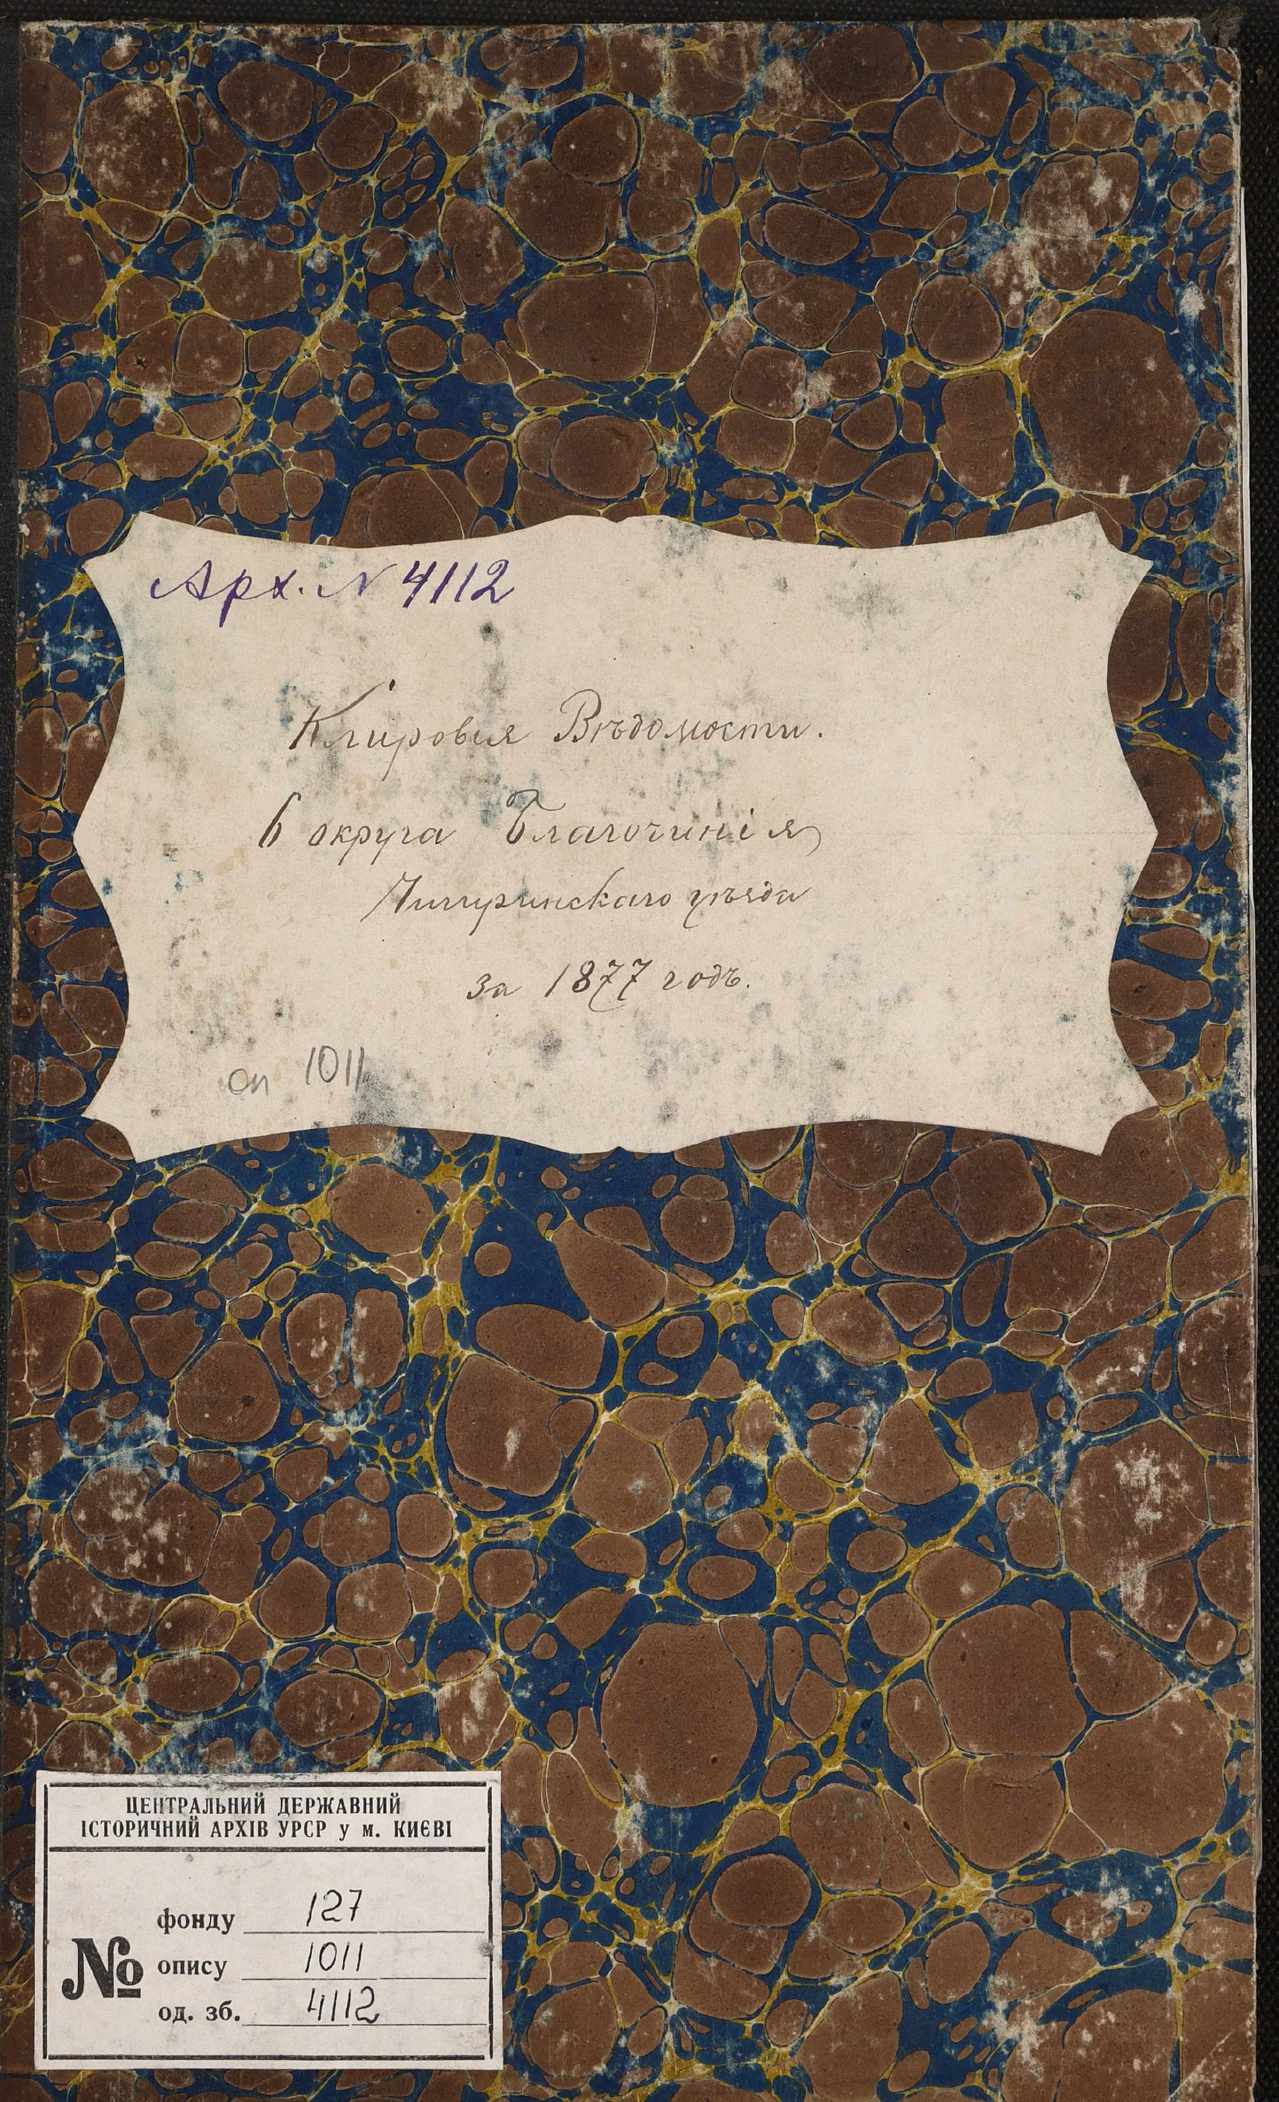 Арх. N 4112
Кліровыя Вѣдомости.
6 округа Благочинія
Чигиринскаго уѣзда
за 1877 годъ.
оп 1011
ЦЕНТРАЛЬНИЙ ДЕРЖАВНИЙ
ІСТОРИЧНИЙ АРХІВ УРСР у м. КИЄВІ
№
фонду 127
опису 1011
од. зб. 4112